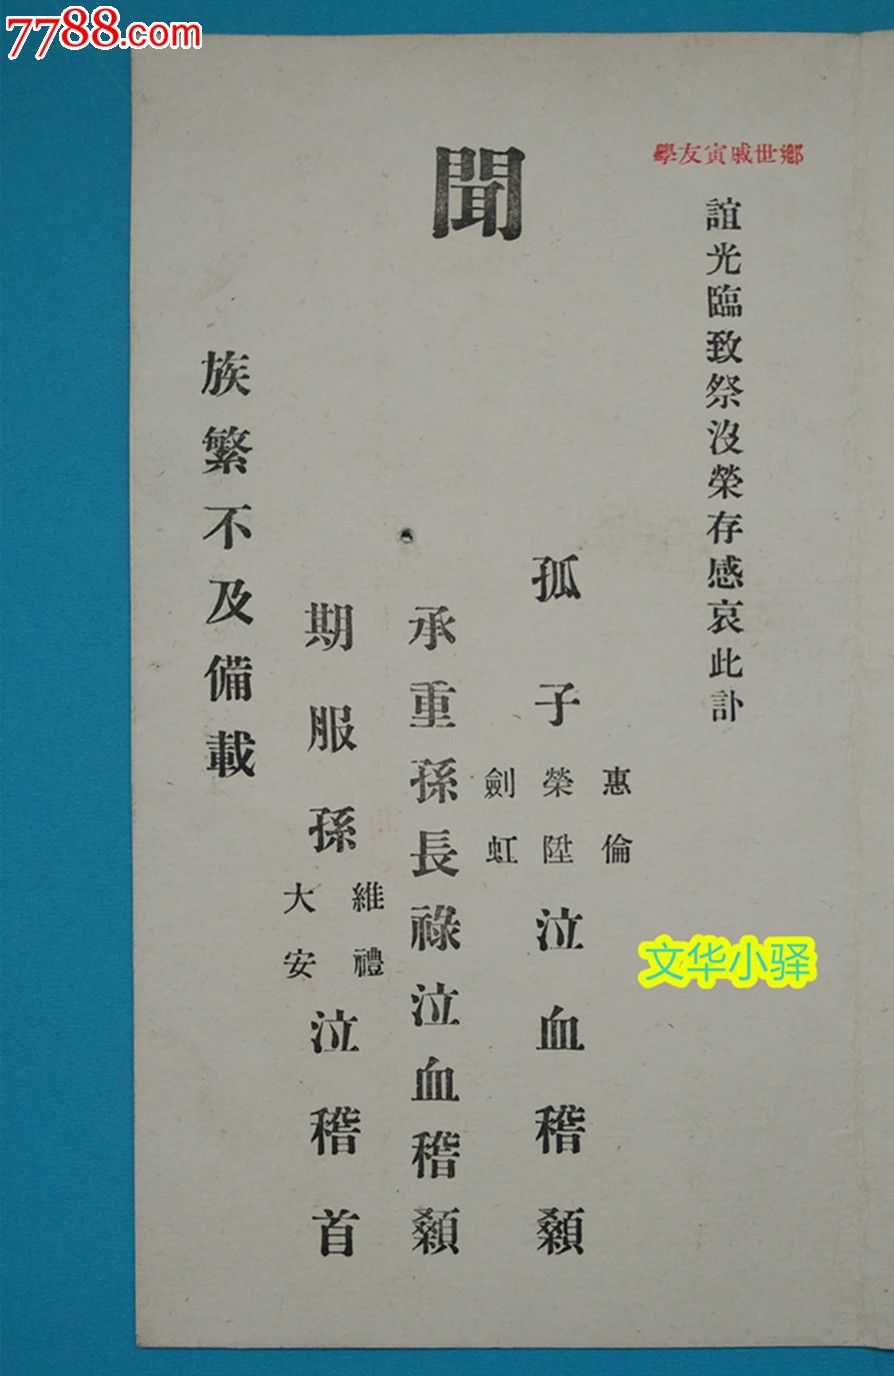 7788.com
鄉世戚寅友學
誼光臨致祭沒榮存感哀此訃
聞
孤子
惠倫
榮陞
劍虹
泣血稽顙
承重孫長祿泣血稽顙
期服孫
維禮
大安
泣稽首
族繁不及備載
文华小驿